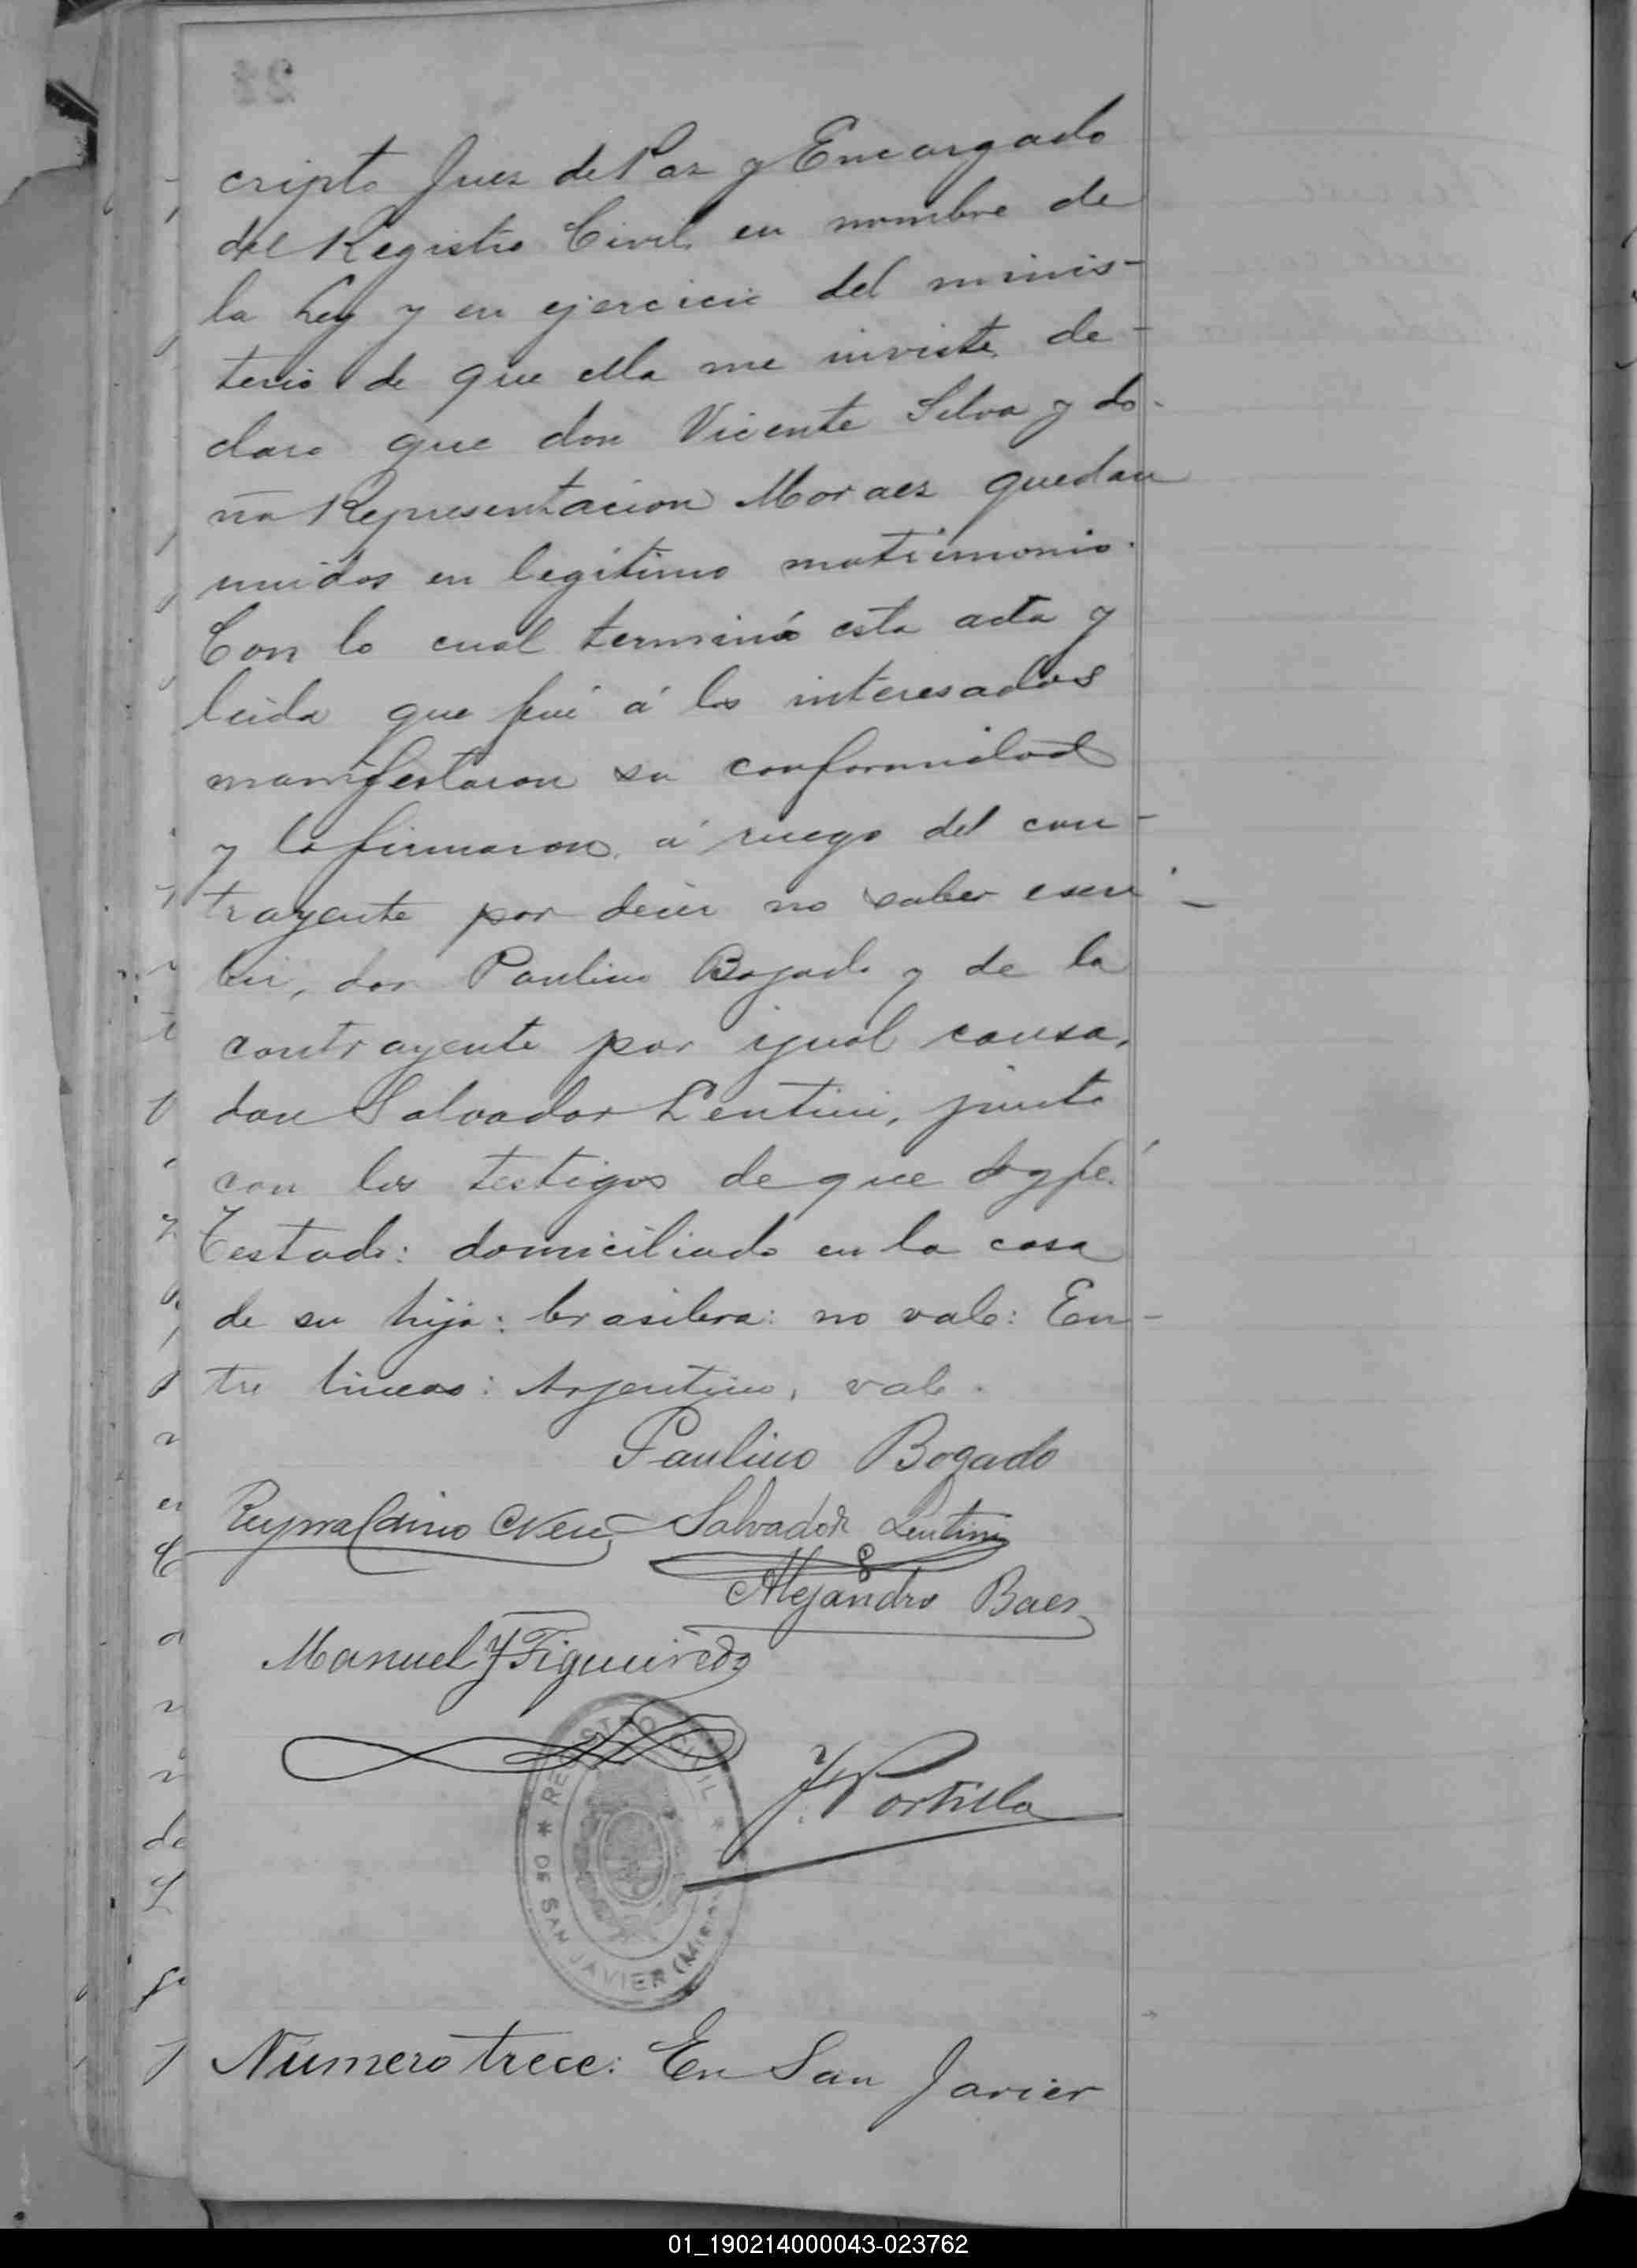 cripto Juez de Paz y Encargado
del Registro Civil, en nombre de
la Ley y en ejercicio del minis-
terio de que ella me inviste, de-
claro que don Vicente Silva y do-
ña Representacion Moraez quedan
unidos en legítimo matrimonio.
Con lo cual terminó esta acta y
leida que fué á los interesados
manifestaron su conformidad
y la firmaron, á ruego del con-
trayente por decir no saber escri-
bir, don Paulino Bogado y de la
contrayente por igual causa,
don Salvador Lentini, junto
con los testigos de que doy fé.
Testado: domiciliado en la casa
de su hija: brasilera: no vale: En-
tre lineas: Argentino, vale.
Paulino Bogado
Salvador Lentini
Alejandro Baez
Manuel J Figueiredo
REGISTRO CIVIL
J. Portilla
* DE SAN JAVIER (Mision
Número trece: En San Javier
01_190214000043-023762